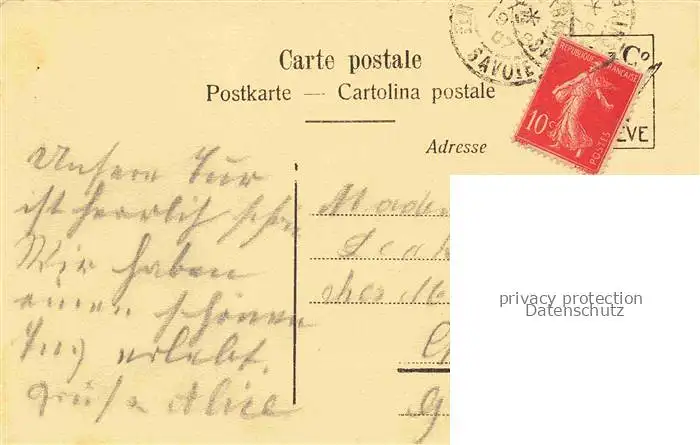 Carte postale
Postkarte — Cartolina postale
Adresse
SAVOIE
REPUBLIQUE FRANÇAISE
10c
POSTES
& Co
ÈVE
Unsere Tur
ist herrlich schön
Wir haben
einen schönen
Tag erlebt.
Gruss Alice
Mad
chez M
privacy protection
Datenschutz